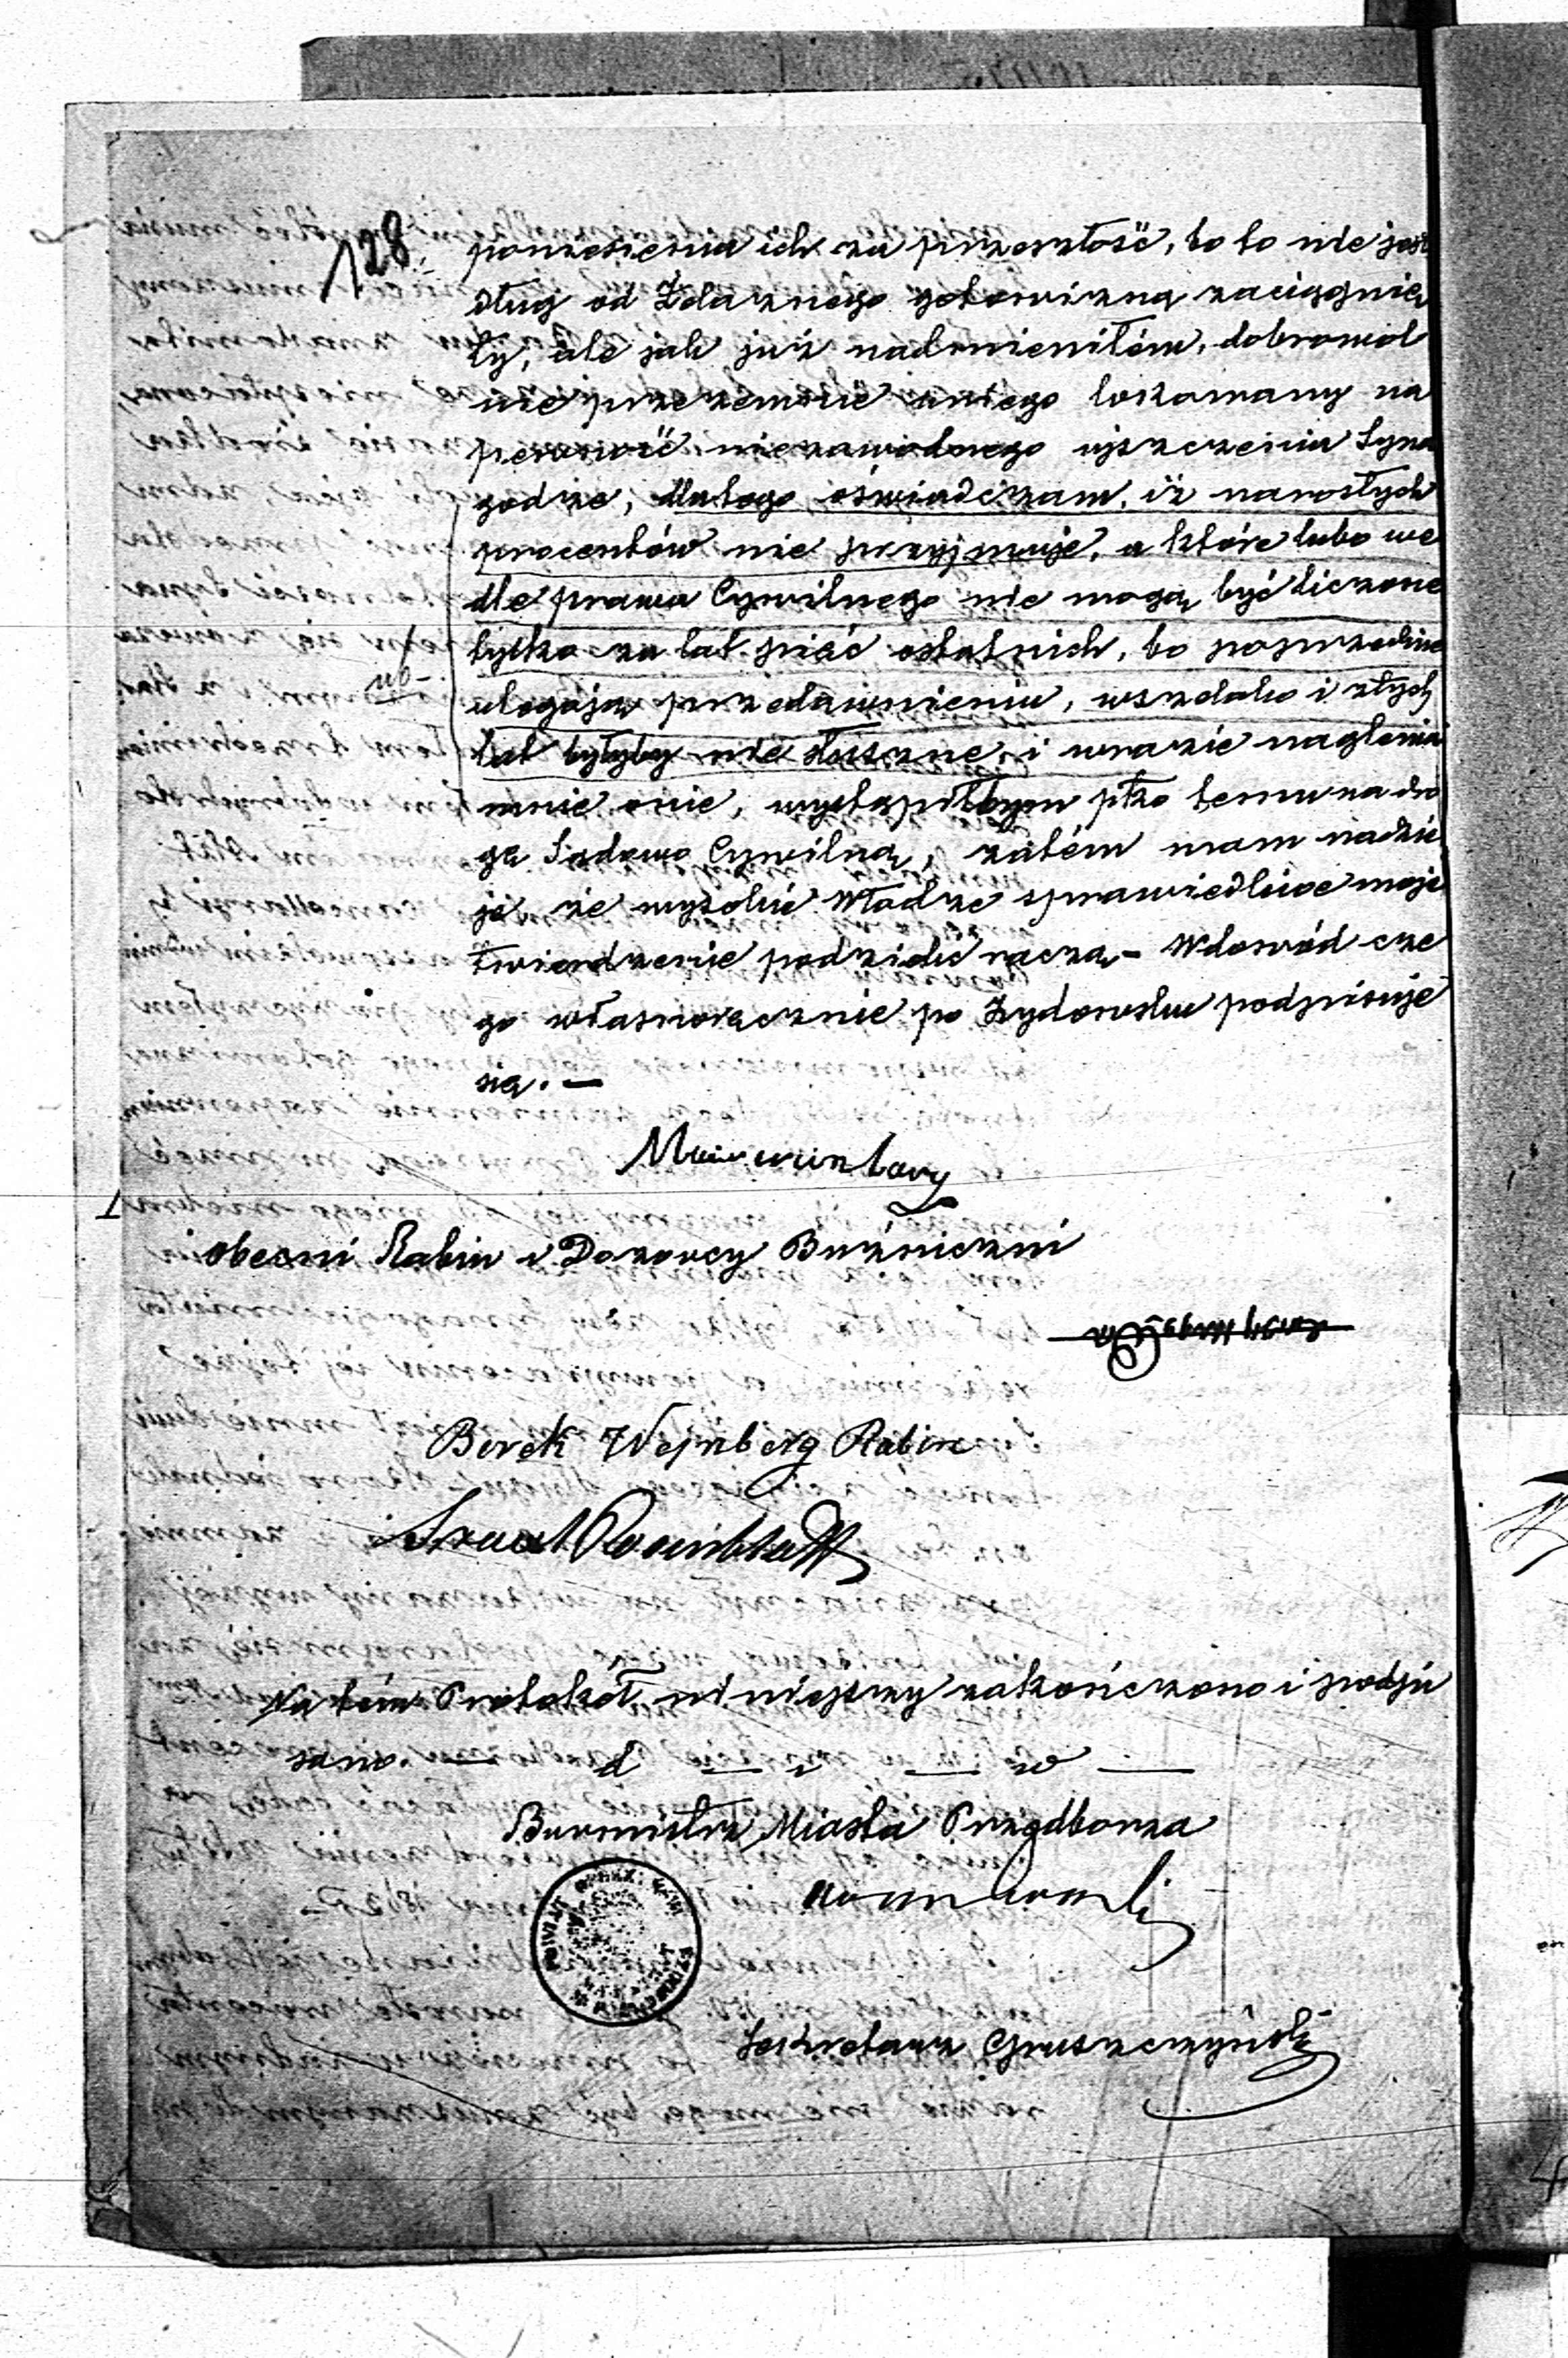 128.
poniesienia ich za przeszłość, bo to nie jest
dług od Żelaznego gotowizną zaciągnię
ty, ale jak już nadmieniłém, dobrowol
nie przezemnie lokowany na
pewność niezawodnego ujszczenia Syna
godze, dlatego oświadczam, iż narosłych
procentów nie przyjmuje, a które lubo we
dle prawa Cywilnego nie mogą być liczone
tylko za lat pięć ostatnich, bo poprzednie
ulegają przedawnieniu, wszelako i z tych
lat byłyby nie słuszne, i wrazie naglenia
mnie onie, wystąpiłbym pko temu na dro
gę Sądowo Cywilną, zatém mam nadzie
je że wyższe Władze sprawiedliwe moje
twierdzenie podzielić raczą – Wdowód cze
go własnoręcznie po Żydowsku podpisuje
się. —
obecni Rabin i Dozorcy Bużniczni
Berek Wejnberg Rabin
Na tém Protokół niniejszy zakończono i podpi
sano. — d — i — w —
Burmistrz Miasta Przedborza
Sekretarz Gruszczyński